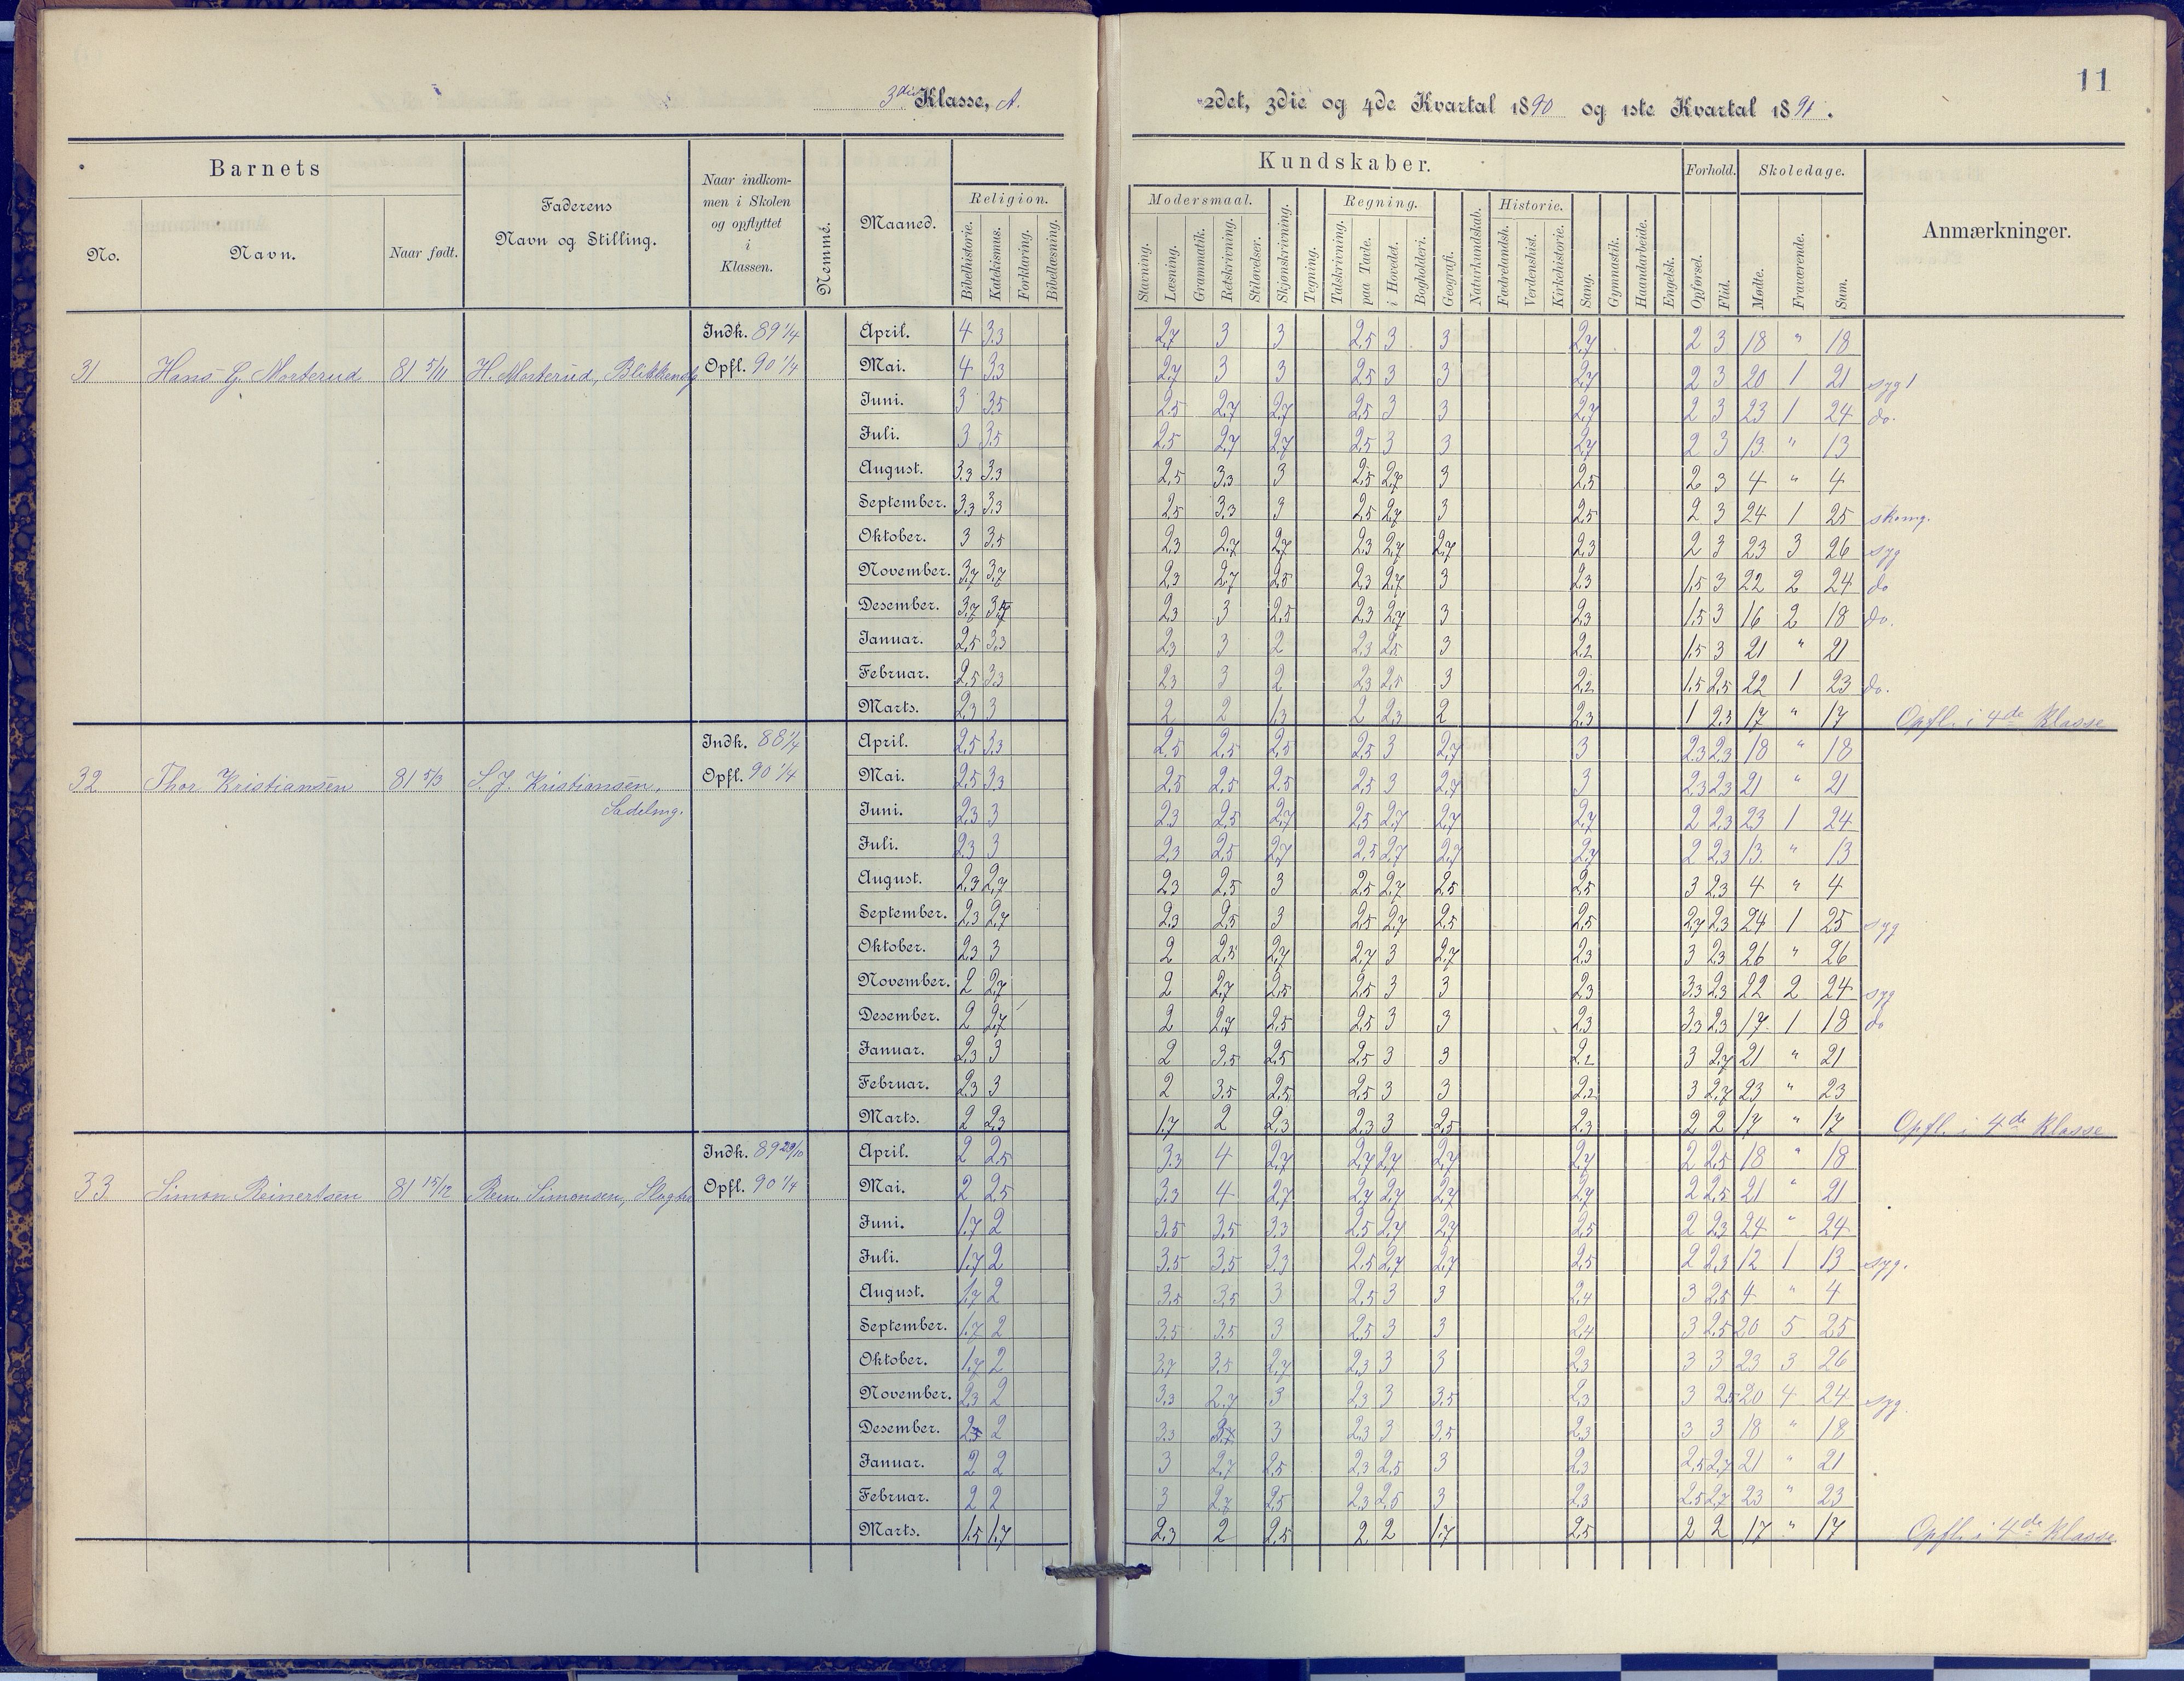 11
3die Klasse, A.
2det, 3die og 4de Kvartal 1890 og 1ste Kvartal 1891.
Barnets
No.
Navn.
Naar født.
Faderens
Navn og Stilling.
Naar indkom-
men i Skolen
og opflyttet
i
Klassen.
Nemme.
Maaned.
Kundskaber.
Religion.
Bibelhistorie.
Katekismus.
Forklaring.
Bibellæsning.
Modersmaal.
Stavning.
Læsning.
Grammatik.
Retskrivning.
Stiløvelser.
Skjønskrivning.
Tegning.
Regning.
Talskrivning.
paa Tavle.
i Hovedet.
Bogholderi.
Geografi.
Naturkundskab.
Historie.
Fædrelandsh.
Verdenshist.
Kirkehistorie.
Sang.
Gymnastik.
Haandarbeide.
Engelsk.
Forhold.
Opførsel.
Flid.
Skoledage.
Møde.
Fraværende.
Sum.
Anmærkninger.
31 Hans G. Morterud 81 5/11 H. Morterud,
Indk. 89 1/4
Opfl. 90 1/4
April. 4 3.3 2,7 3 3 2,5 3 3 2,7 2 3 18 " 18
Mai. 4 3.3 2,7 3 3 2,5 3 3 2,7 2 3 20 1 21 syg 1
Juni. 3 3.5 2,5 2,7 2,7 2,5 3 3 2,7 2 3 23 1 24 do.
Juli. 3 3.5 2,5 2,7 2,7 2,5 3 3 2,7 2 3 13 " 13
August. 3.3 3.3 2,5 3.3 3 2,5 2,7 3 2,5 2 3 4 " 4
September. 3.3 3.3 2,5 3.3 3 2,5 2,7 3 2,5 2 3 24 1 25
Oktober. 3 3.5 2,3 2,7 2,7 2,3 2,7 2,7 2,3 2 3 23 3 26 syg
November. 3,7 3,7 2,3 2,7 2,5 2,3 2,7 3 2,3 1.5 3 22 2 24 do
Desember. 3,7 2,3 3 2,5 2,3 2,7 3 2,3 1.5 3 16 2 18 do.
Januar. 2,5 3.3 2,3 3 2 2,3 2,5 3 2,2 1.5 3 21 " 21
Februar. 2,5 3.3 2,3 3 2 2,3 2,5 3 2,2 1.5 2,5 22 1 23 do.
Marts. 2,3 3 2 2 1.3 2 2,3 2 2,3 1 2,3 17 " 17 Opfl. i 4de Klasse
32 Thor Kristiansen 81 5/3 S. J. Kristiansen,
Sadelmg.
Indk. 88 1/4
Opfl. 90 1/4
April. 2,5 3.3 2,5 2,5 2,5 2,5 3 2,7 3 2,3 2,3 18 " 18
Mai. 2,5 3.3 2,5 2,5 2,5 2,5 3 2,7 3 2,3 2,3 21 " 21
Juni. 2,3 3 2,3 2,5 2,7 2,5 2,7 2,7 2,7 2 2,3 23 1 24
Juli. 2,3 3 2,3 2,5 2,7 2,5 2,7 2,7 2,7 2 2,3 13 " 13
August. 2,3 2,7 2,3 2,5 3 2,5 2,7 2,5 2,5 3 2,3 4 " 4
September. 2,3 2,7 2,3 2,5 3 2,5 2,7 2,5 2,5 2,7 2,3 24 1 25 syg
Oktober. 2,3 3 2 2,5 2,7 2,7 3 2,7 2,3 3 2,3 26 " 26
November. 2 2,7 2 2,7 2,5 2,5 3 3 2,3 3.3 2,3 22 2 24 syg
Desember. 2 2,7 2 2,7 2,5 2,5 3 3 2,3 3.3 2,3 17 1 18 do
Januar. 2,3 3 2 3.5 2,5 2,5 3 3 2,2 3 2,7 21 " 21
Februar. 2,3 3 2 3.5 2,5 2,5 3 3 2,2 3 2,7 23 " 23
Marts. 2 2,3 1,7 2 2,3 2,3 3 2,5 2,3 2 2 17 " 17 Opfl. i 4de Klasse
33 Simon Reinertsen 81 15/12 Rein. Simonsen,
Indk. 89 29/10
Opfl. 90 1/4
April. 2 2,5 3.3 4 2,7 2,7 2,7 2,7 2,7 2 2,5 18 " 18
Mai. 2 2,5 3.3 4 2,7 2,7 2,7 2,7 2,7 2 2,5 21 " 21
Juni. 1,7 2 3.5 3.5 3.3 2,5 2,7 2,7 2,5 2 2,3 24 " 24
Juli. 1,7 2 3.5 3.5 3.3 2,5 2,7 2,7 2,5 2 2,3 12 1 13 syg.
August. 1,7 2 3.5 3.5 3 2,5 3 3 2,4 3 2,5 4 " 4
September. 1,7 2 3.5 3.5 3 2,5 3 3 2,4 3 2,5 20 5 25
Oktober. 1,7 2 3,7 3.5 2,7 2,3 3 3 2,3 3 3 23 3 26
November. 2,3 2 3.3 2,7 3 2,3 3 3.5 2,3 3 2,5 20 4 24 syg.
Desember. 2 3.3 3 2,3 3 3.5 2,3 3 3 18 " 18
Januar. 2 2 3 2,7 2,5 2,3 2,5 3 2,3 2,5 2,7 21 " 21
Februar. 2 2 3 2,7 2,5 2,3 2,5 3 2,3 2,5 2,7 23 " 23
Marts. 1.5 1,7 2,3 2 2,5 2 2 1,7 2,5 2 2 17 " 17 Opfl. i 4de Klasse